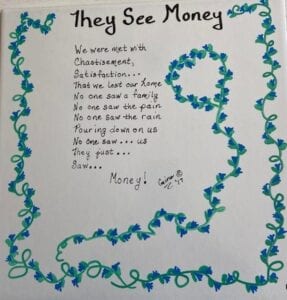 They See Money
We were met with
Chastisement,
Satisfaction...
That we lost our home
No one saw a family
No one saw the pain
No one saw the rain
Pouring down on us
No one saw... us
They just...
Saw...
Money!
©